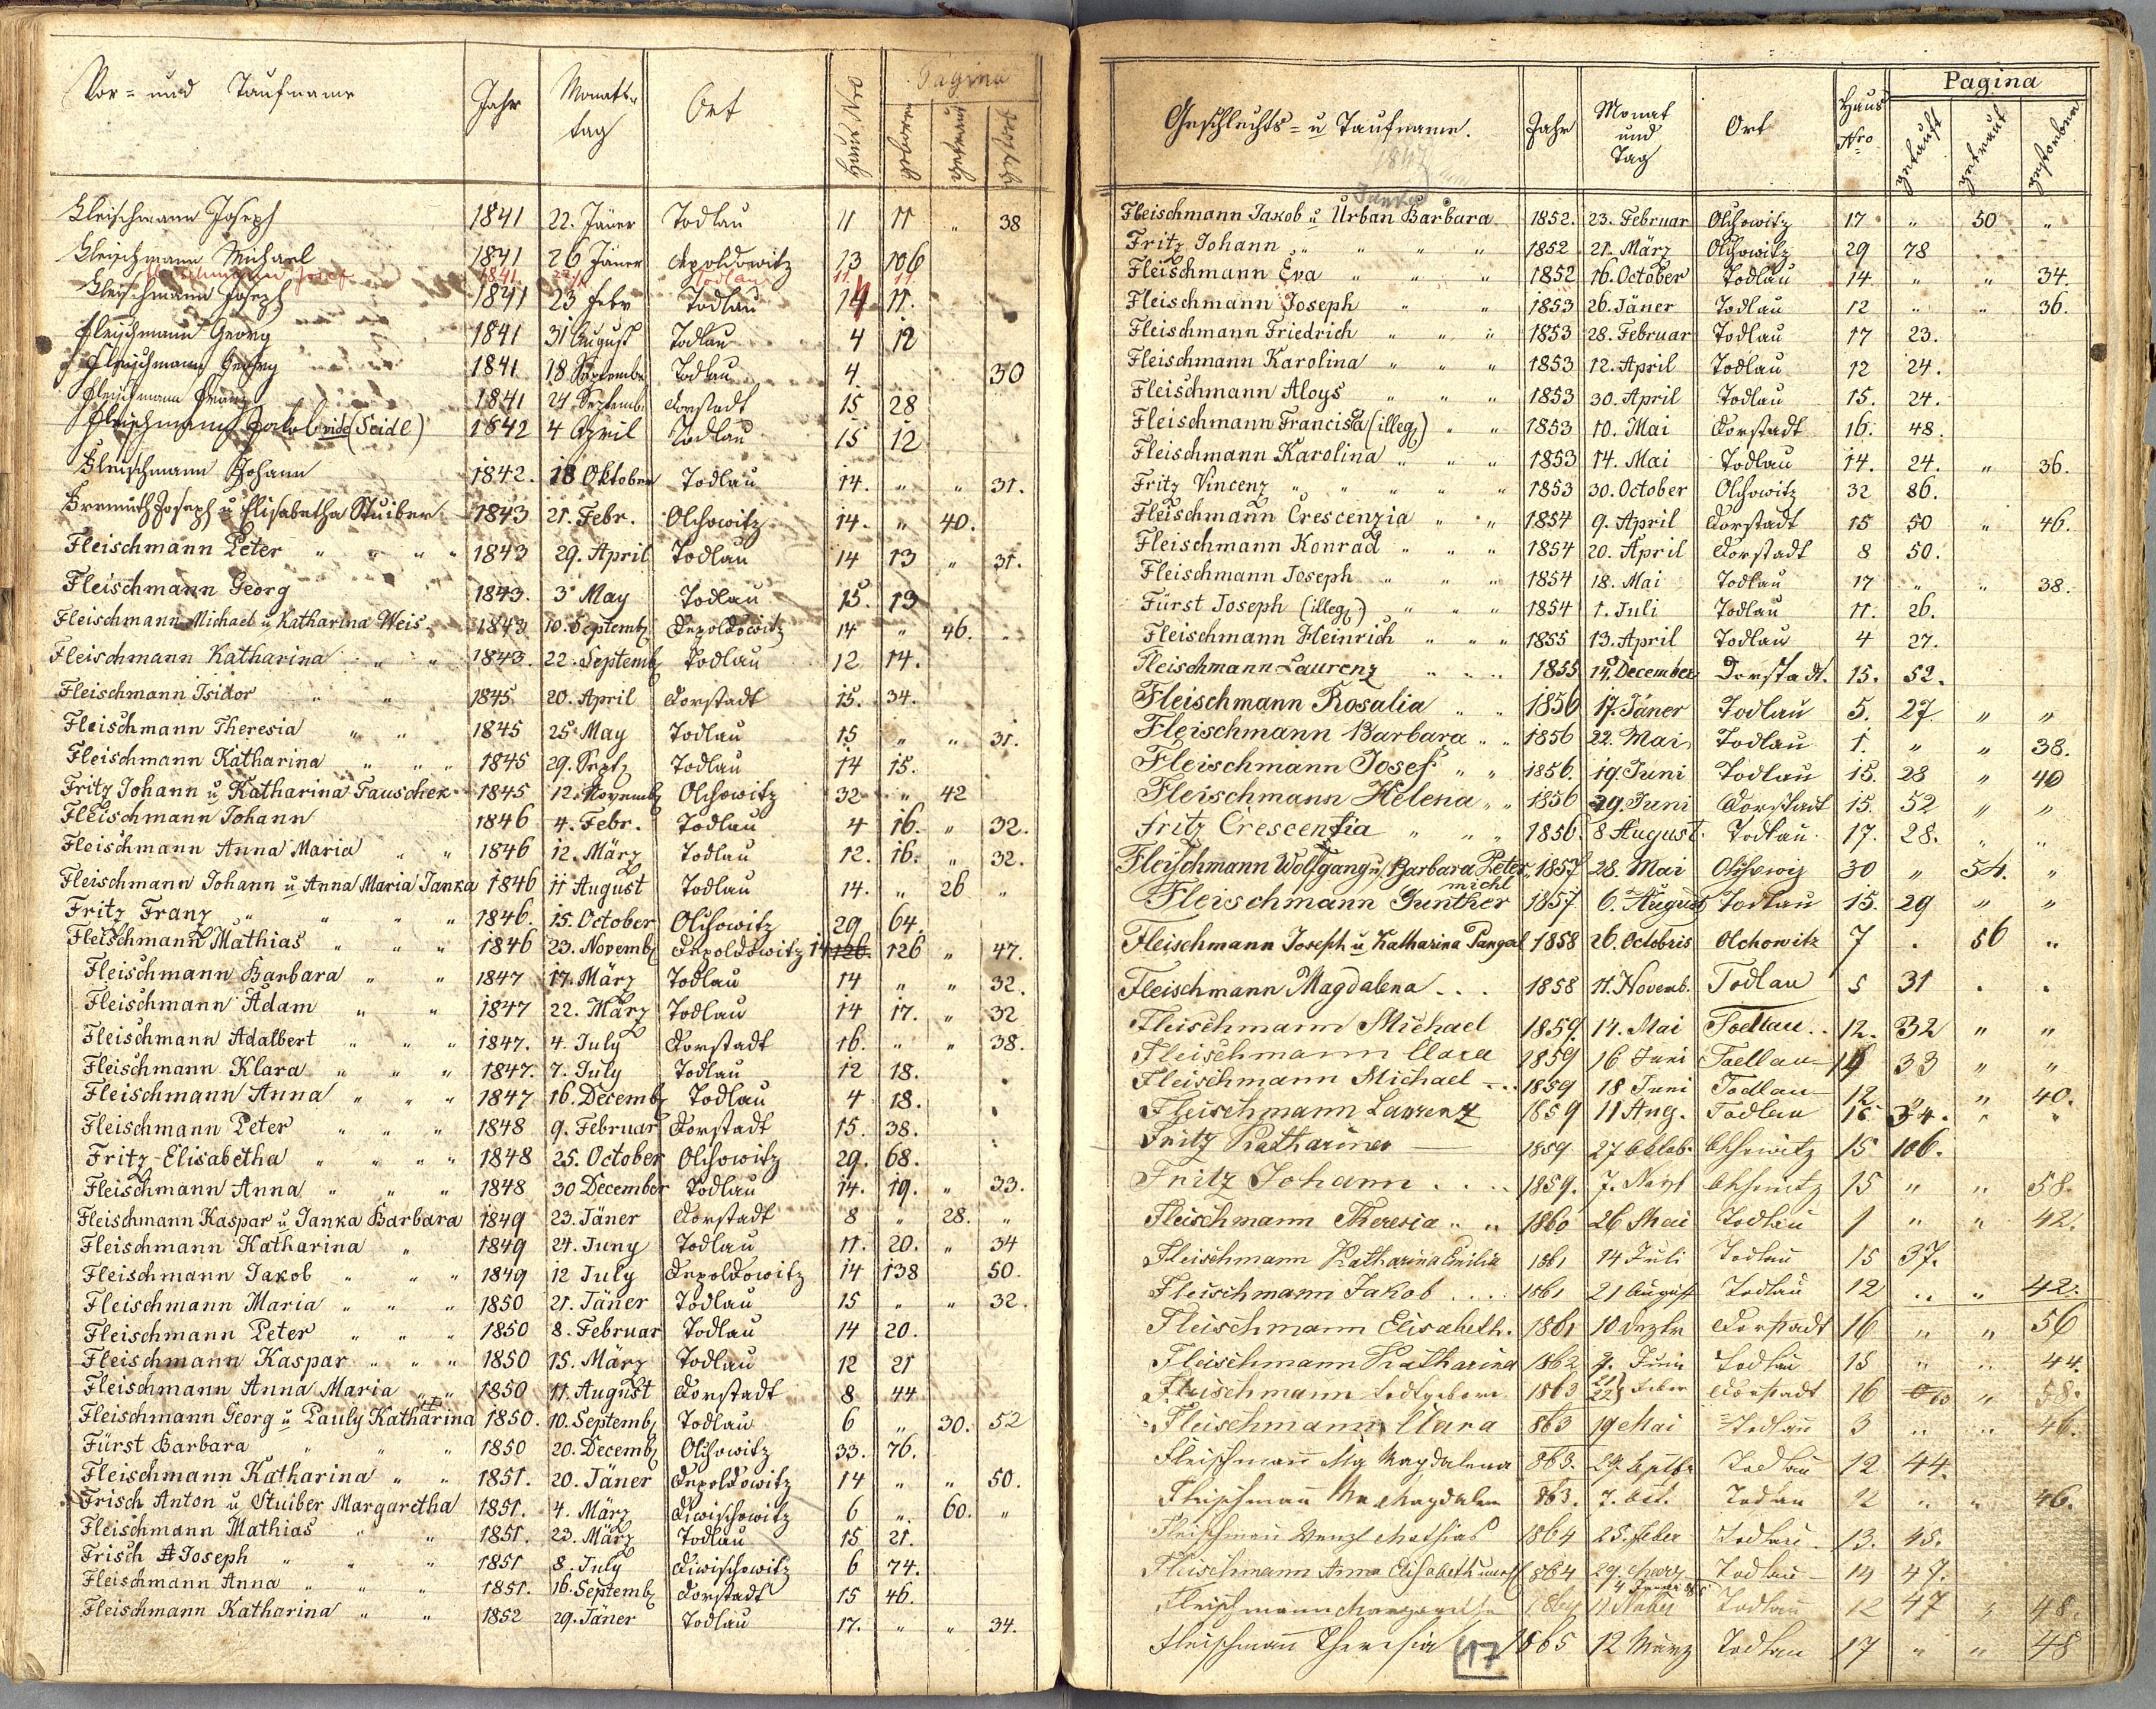 Vor- und Taufname Jahr Monats- tag Ort Haus Nro Pagina geboren getraut gestorb
Fleischmann Joseph 1841 22. Jäner Todlau 11 11 " 38
Fleischmann Michael 1841 26 Jäner Depoldowitz 23 106
Fleischmann Josef 1841 Todlau 11. 11.
Fleischmann Joseph 1841 23 Febr Todlau 14 11.
Fleischmann Georg 1841 31 August Todlau 4 12
Fleischmann Georg 1841 18 September Todlau 4 30
Fleischmann Franz 1841 24 Septemb. Dorstadt 15 28
Fleischmann Jakob vide (Seidl) 1842 4 April Todlau 15 12
Fleischmann Johann 1842. 18 Oktober Todlau 14. " " 31.
Joseph u Elisabetha Stuiber 1843 21. Febr. Olchowitz 14. " 40.
Fleischmann Peter " " " " 1843 29. April Todlau 14 13 " 31.
Fleischmann Georg 1843. 3 May Todlau 15. 13
Fleischmann Michael u Katharina Weis 1843 10. Septemb Depoldowitz 14 " 46.
Fleischmann Katharina " " 1843. 22. Septemb Todlau 12 14.
Fleischmann Isidor " " 1845 20. April Dorstadt 15. 34.
Fleischmann Theresia " " 1845 25 May Todlau 15 " " 31.
Fleischmann Katharina " " " 1845 29. Sept Todlau 14 15.
Fritz Johann u Katharina Tauschek 1845 12. Novemb Olchowitz 32 " 42
Fleischmann Johann 1846 4. Febr. Todlau 4 16. " 32.
Fleischmann Anna Maria " " 1846 12. März Todlau 12. 16. " 32.
Fleischmann Johann u Anna Maria Janka 1846 11 August Todlau 14. " 26 "
Fritz Franz " " " " 1846. 15. October Olchowitz 29 64.
Fleischmann Mathias " " " 1846 23. Novemb Depoldowitz 14 126. 126 " 47.
Fleischmann Barbara " " 1847 17. März Todlau 14 " " 32.
Fleischmann Adam " " 1847 22. März Todlau 14 17. " 32
Fleischmann Adalbert " " " 1847. 4. July Dorstadt 16. " " 38.
Fleischmann Klara " " " 1847. 7. July Todlau 12 18.
Fleischmann Anna " " " 1847 16. Decemb Todlau 4 18.
Fleischmann Peter " " " 1848 9. Februar Dorstadt 15. 38.
Fritz Elisabetha " " " " 1848 25. October Olchowitz 29. 68.
Fleischmann Anna " " " 1848 30 December Todlau 14. 19. " 33.
Fleischmann Kaspar u Janka Barbara 1849 23. Jäner Dorstadt 8 " 28. "
Fleischmann Katharina " 1849 24. Juny Todlau 11. 20. " 34
Fleischmann Jakob " " " 1849 12 July Depoldowitz 14 138 50.
Fleischmann Maria " " " 1850 21. Jäner Todlau 15 " " 32.
Fleischmann Peter " " " 1850 8. Februar Todlau 14 20.
Fleischmann Kaspar " " " 1850 15. März Todlau 12 21
Fleischmann Anna Maria " " 1850 11. August Dorstadt 8 44
Fleischmann Georg u Pauly Katharina 1850. 10. Septemb Todlau 6 " 30. 52
Fürst Barbara " " " 1850 20. Decemb Olchowitz 33. 76.
Fleischmann Katharina " " 1851. 20. Jäner Depoldowitz 14 " " 50.
Frisch Anton u Stuiber Margaretha 1851. 4. März Diwischowitz 6 " 60. "
Fleischmann Mathias " " 1851. 23. März Todlau 15 21.
Frisch Joseph " " " 1851 8. July Diwischowitz 6 74.
Fleischmann Anna " " " 1851. 16. Septemb Dorstadt 15 46.
Fleischmann Katharina " " 1852 29. Jäner Todlau 17. " " 34.
Geschlechts- u Taufname. Jahr Monat und Tag Ort Haus Nro Pagina getauft getraut gestorben
1847
Janka
Fleischmann Jakob u Urban Barbara 1852. 23. Februar Olchowitz 17 " 50 "
Fritz Johann " " " " 1852 21. März Olchowitz 29 78
Fleischmann Eva " " " 1852 16. October Todlau 14 " " 34.
Fleischmann Joseph " " 1853 26. Jäner Todlau 12 " " 36.
Fleischmann Friedrich " " " 1853 28. Februar Todlau 17 23.
Fleischmann Karolina " " " 1853 12. April Todlau 12 24.
Fleischmann Aloys " " " 1853 30. April Todlau 15. 24.
Fleischmann Francisca (illeg) " " 1853 10. Mai Dorstadt 16. 48.
Fleischmann Karolina " " " 1853 14. Mai Todlau 14. 24. " 36.
Fritz Vincenz " " " " " 1853 30. October Olchowitz 32 86.
Fleischmann Crescenzia " " 1854 9. April Dorstadt 15 50 " 46.
Fleischmann Konrad " " " 1854 20. April Dorstadt 8 50.
Fleischmann Joseph " " " 1854 18. Mai Todlau 17 " " 38.
Fürst Joseph (illeg) " " " 1854 1. Juli Todlau 11. 26.
Fleischmann Heinrich " " " 1855 13. April Todlau 4 27.
Fleischmann Laurenz " " " 1855 14. December Dorstadt. 15. 52.
Fleischmann Rosalia " " 1856 17. Jäner Todlau 5. 27 " "
Fleischmann Barbara " " 1856 22. Mai Todlau 1. " " 38.
Fleischmann Josef " " 1856. 19. Juni Todlau 15. 28 " 40
Fleischmann Helena " " 1856 29. Juni Dorstadt 15. 52 " "
Fritz Crescentia " " " 1856. 8 August. Todlau. 17. 28. " "
Fleischmann Wolfgang u. Barbara Peter 1857 28. Mai Olchowiz 30 " 54. "
michl
Fleischmann Gunther 1857 6. August Todlau 15. 29 " "
Fleischmann Joseph u Katharina Pangerl 1858 26. Octobris Olchowitz 7 . 56 "
Fleischmann Magdalena . . . 1858 11. Novemb. Todlau 5 31 . .
Fleischmann Michael 1859. 14. Mai Todlau.. 12. 32 " "
Fleischmann Clara 1859 16 Juni Todlau 14 33 " "
Fleischmann Michael 1859 18 Juni Todlau 12. " " 40.
Fleischmann Laurenz 1859 11 Aug. Todlau 15 34. " "
Fritz Katharina 1859 27 Oktob. Olchowitz 15 106.
Fritz Johann . . . . 1859. 7. Olchowitz 15 " " 58.
Fleischmann Theresia " " 1860 26 Mai Todlau 1 " " 42.
Fleischmann Katharina Emilia 1861 14 Juli Todlau 15 37.
Fleischmann Jakob . . . . 1861 21 August Todlau 12 " " 42.
Fleischmann Elisabeth. 1861 10 Dezbr Dorstadt 16 " " 56
Fleischmann Katharina 1862 9. Juni Todlau 15 " " 44.
Fleischmann todtgeboren 1863 21 22 Feber Dorstadt 16 " 58.
Fleischmann Clara 863 19 Mai Todlau 3 " " 46.
Fleischmann Magdalena 863. 29. Septbr Todlau 12 44.
Fleischmann Magdalen 863. 7. Oct. Todlau 12 " " 46.
Fleischmann Wenzl Mathias 1864 25. Feber Todlau. 13. 45.
Fleischmann Anna Elisabeth 1864 29. März Todlau 14 47.
Fleischmann Margaretha 1864 11 Todlau 12 47 " 48.
Fleischmann Theresia 1865 12 März Todlau 17 " " 48
17